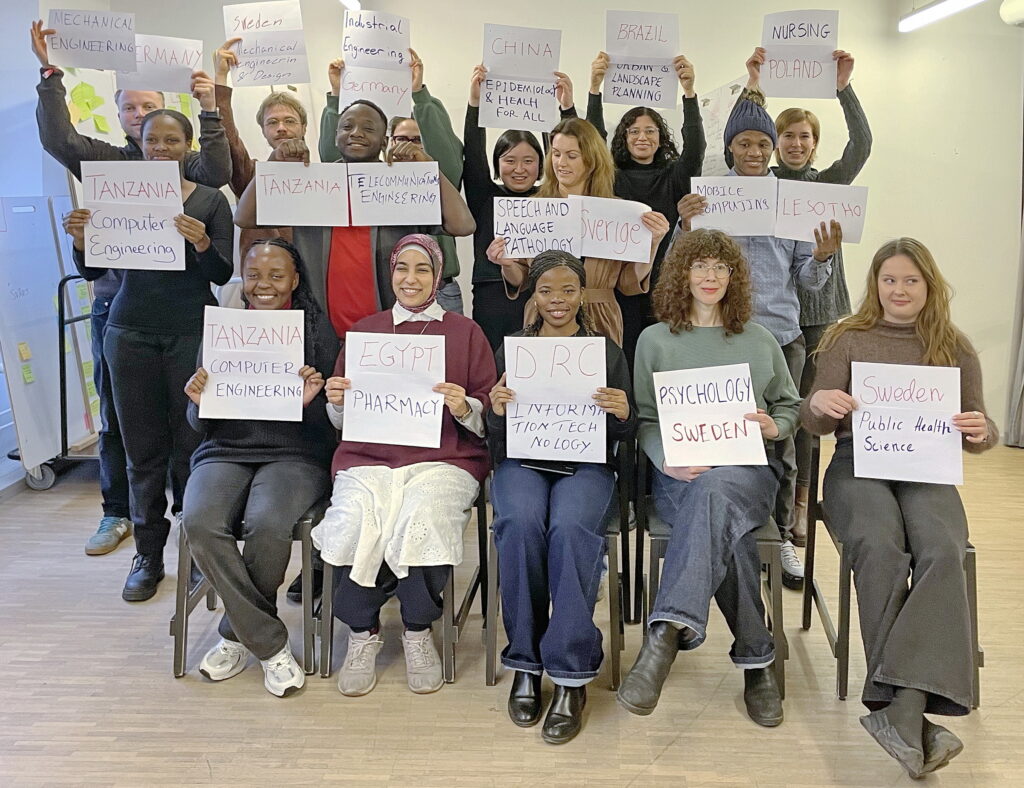 MECHANICAL
ENGINEERING
GERMANY
Sweden
Mechanical
Engineering
& Design
Industrial
Engineering
Germany
CHINA
EPIDEMIOLOGY
& HEALH
FOR ALL
BRAZIL
URBAN &
LANDSCAPE
PLANNING
NURSING
POLAND
TANZANIA
Computer
Engineering
TANZANIA
TELECOMMUNICATIONS
ENGINEERING
SPEECH AND
LANGUAGE
PATHOLOGY
Sverige
MOBILE
COMPUTING
LESOTHO
TANZANIA
COMPUTER
ENGINEERING
EGYPT
PHARMACY
DRC
INFORMA
TION TECH
NOLOGY.
PSYCHOLOGY
SWEDEN
Sweden
Public Health
Science